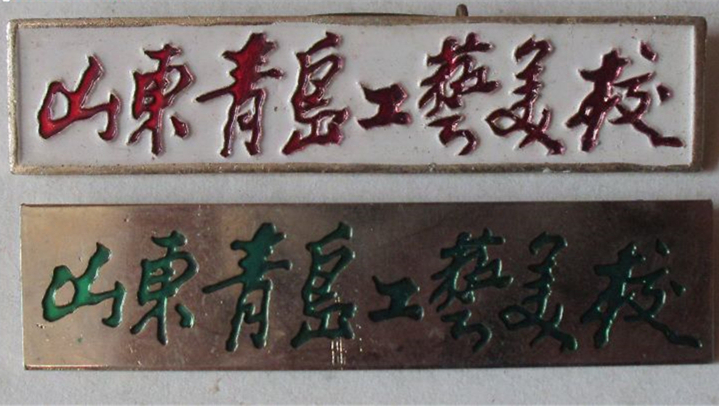 山東青島工藝美校
山東青島工藝美校